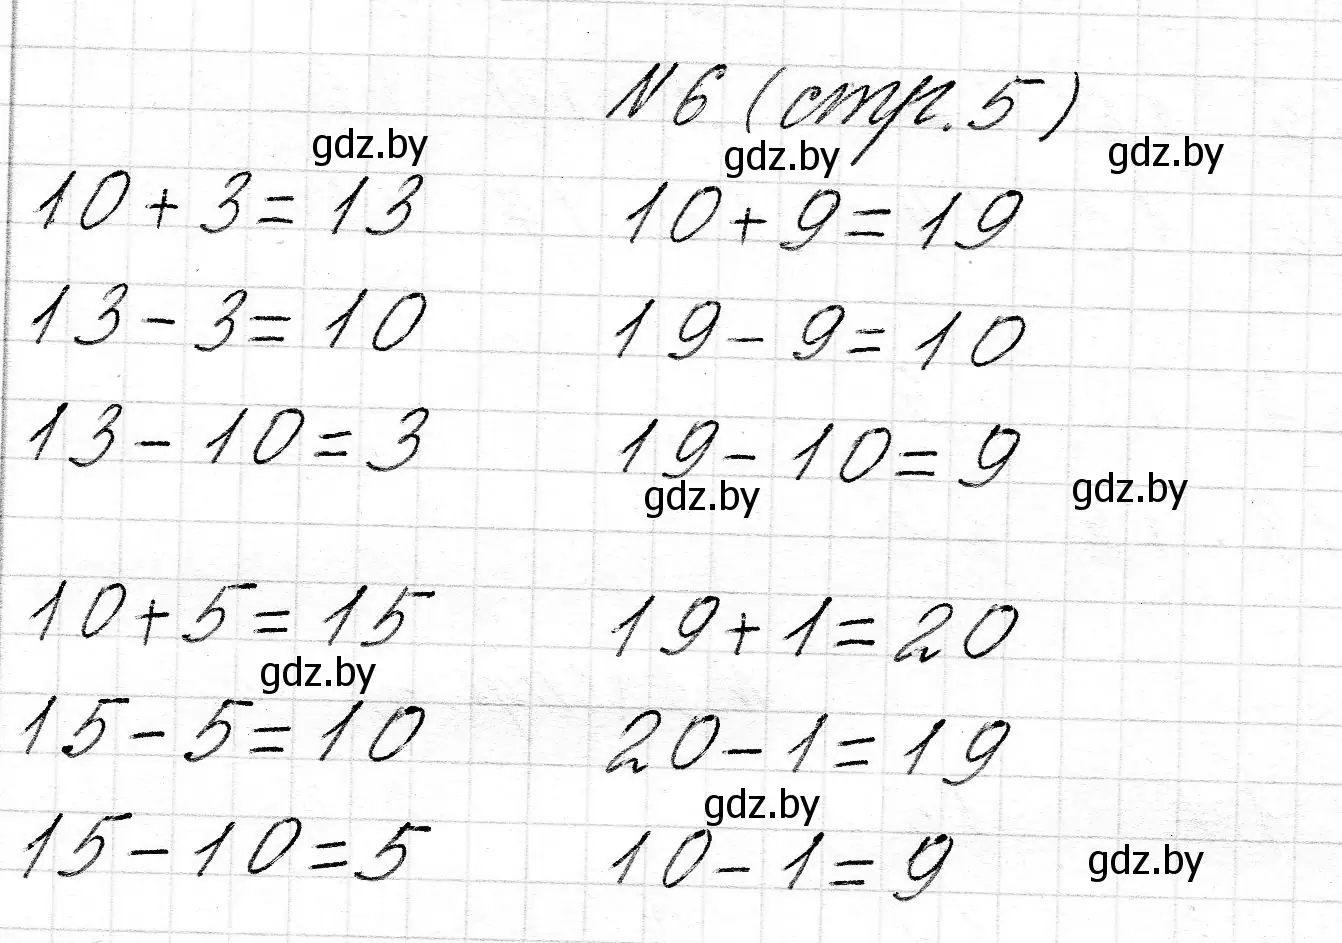 № 6 (стр. 5)
gdz.by gdz.by gdz.by
10 + 3 = 13 10 + 9 = 19
13 - 3 = 10 19 - 9 = 10
13 - 10 = 3 19 - 10 = 9
gdz.by gdz.by
10 + 5 = 15 19 + 1 = 20
gdz.by
15 - 5 = 10 20 - 1 = 19
gdz.by
15 - 10 = 5 10 - 1 = 9
gdz.by